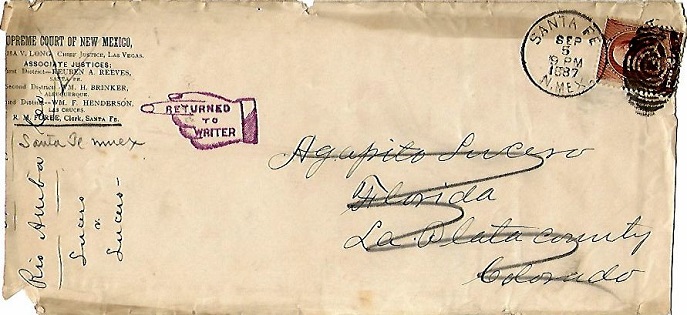 SUPREME COURT OF NEW MEXICO,
V. LONG, CHIEF JUSTICE, LAS VEGAS.
ASSOCIATE JUSTICES:
First District—REUBEN A. REEVES,
SANTA FE.
Second District—WM. H. BRINKER,
ALBUQUERQUE.
Third District—WM. F. HENDERSON,
LAS CRUCES.
Clerk, SANTA FE.
Santa Fe nmex
Rio Arriba
Lucero
v.
Lucero
RETURNED
TO
WRITER
SANTA FE
SEP
5
9 PM
1887
N.MEX.
Agapito Lucero
Florida
La Plata county
Colorado